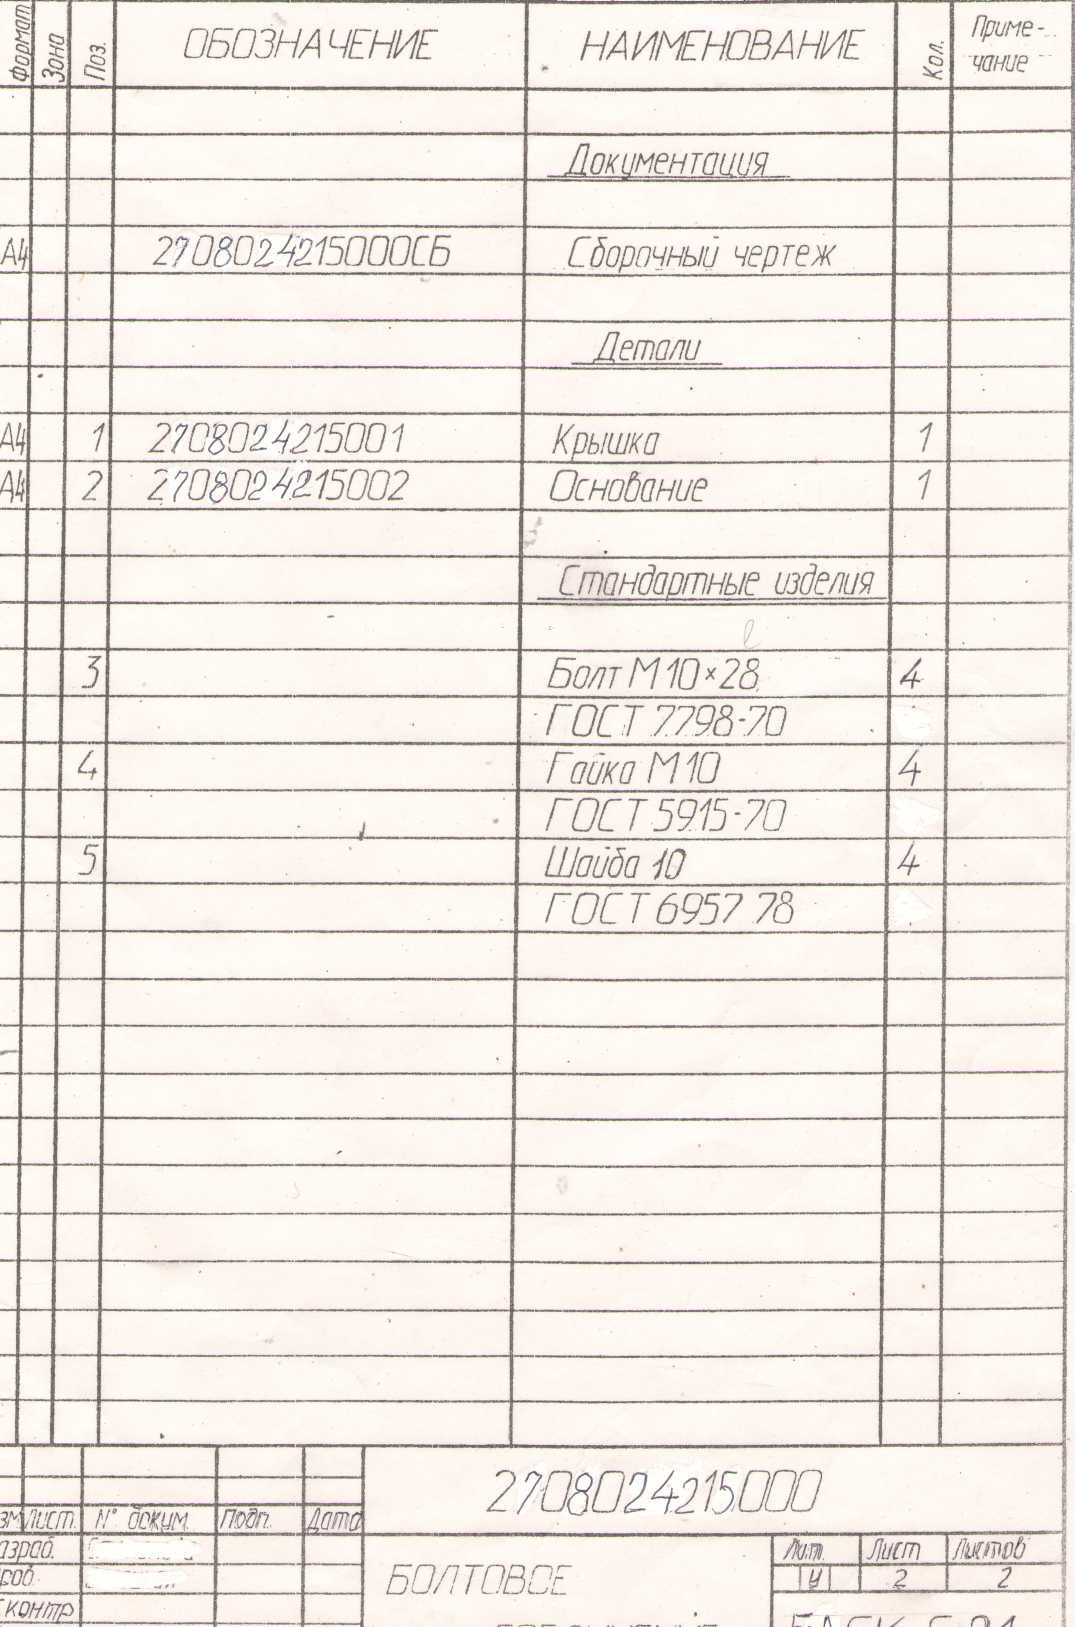 Формат Зона Поз. ОБОЗНАЧЕНИЕ НАИМЕНОВАНИЕ Кол. Приме-
чание
Документация
А4 2708024215000СБ Сборочный чертеж
Детали
А4 1 2708024215001 Крышка 1
А4 2 2708024215002 Основание 1
Стандартные изделия
3 Болт М10×28 4
ГОСТ 7798-70
4 Гайка М10 4
ГОСТ 5915-70
5 Шайба 10 4
ГОСТ 6957 78
2708024215000
зм Лист. N° докум. Подп. Дата
азраб. Лит. Лист Листов
ров. БОЛТОВОЕ У 2 2
контр